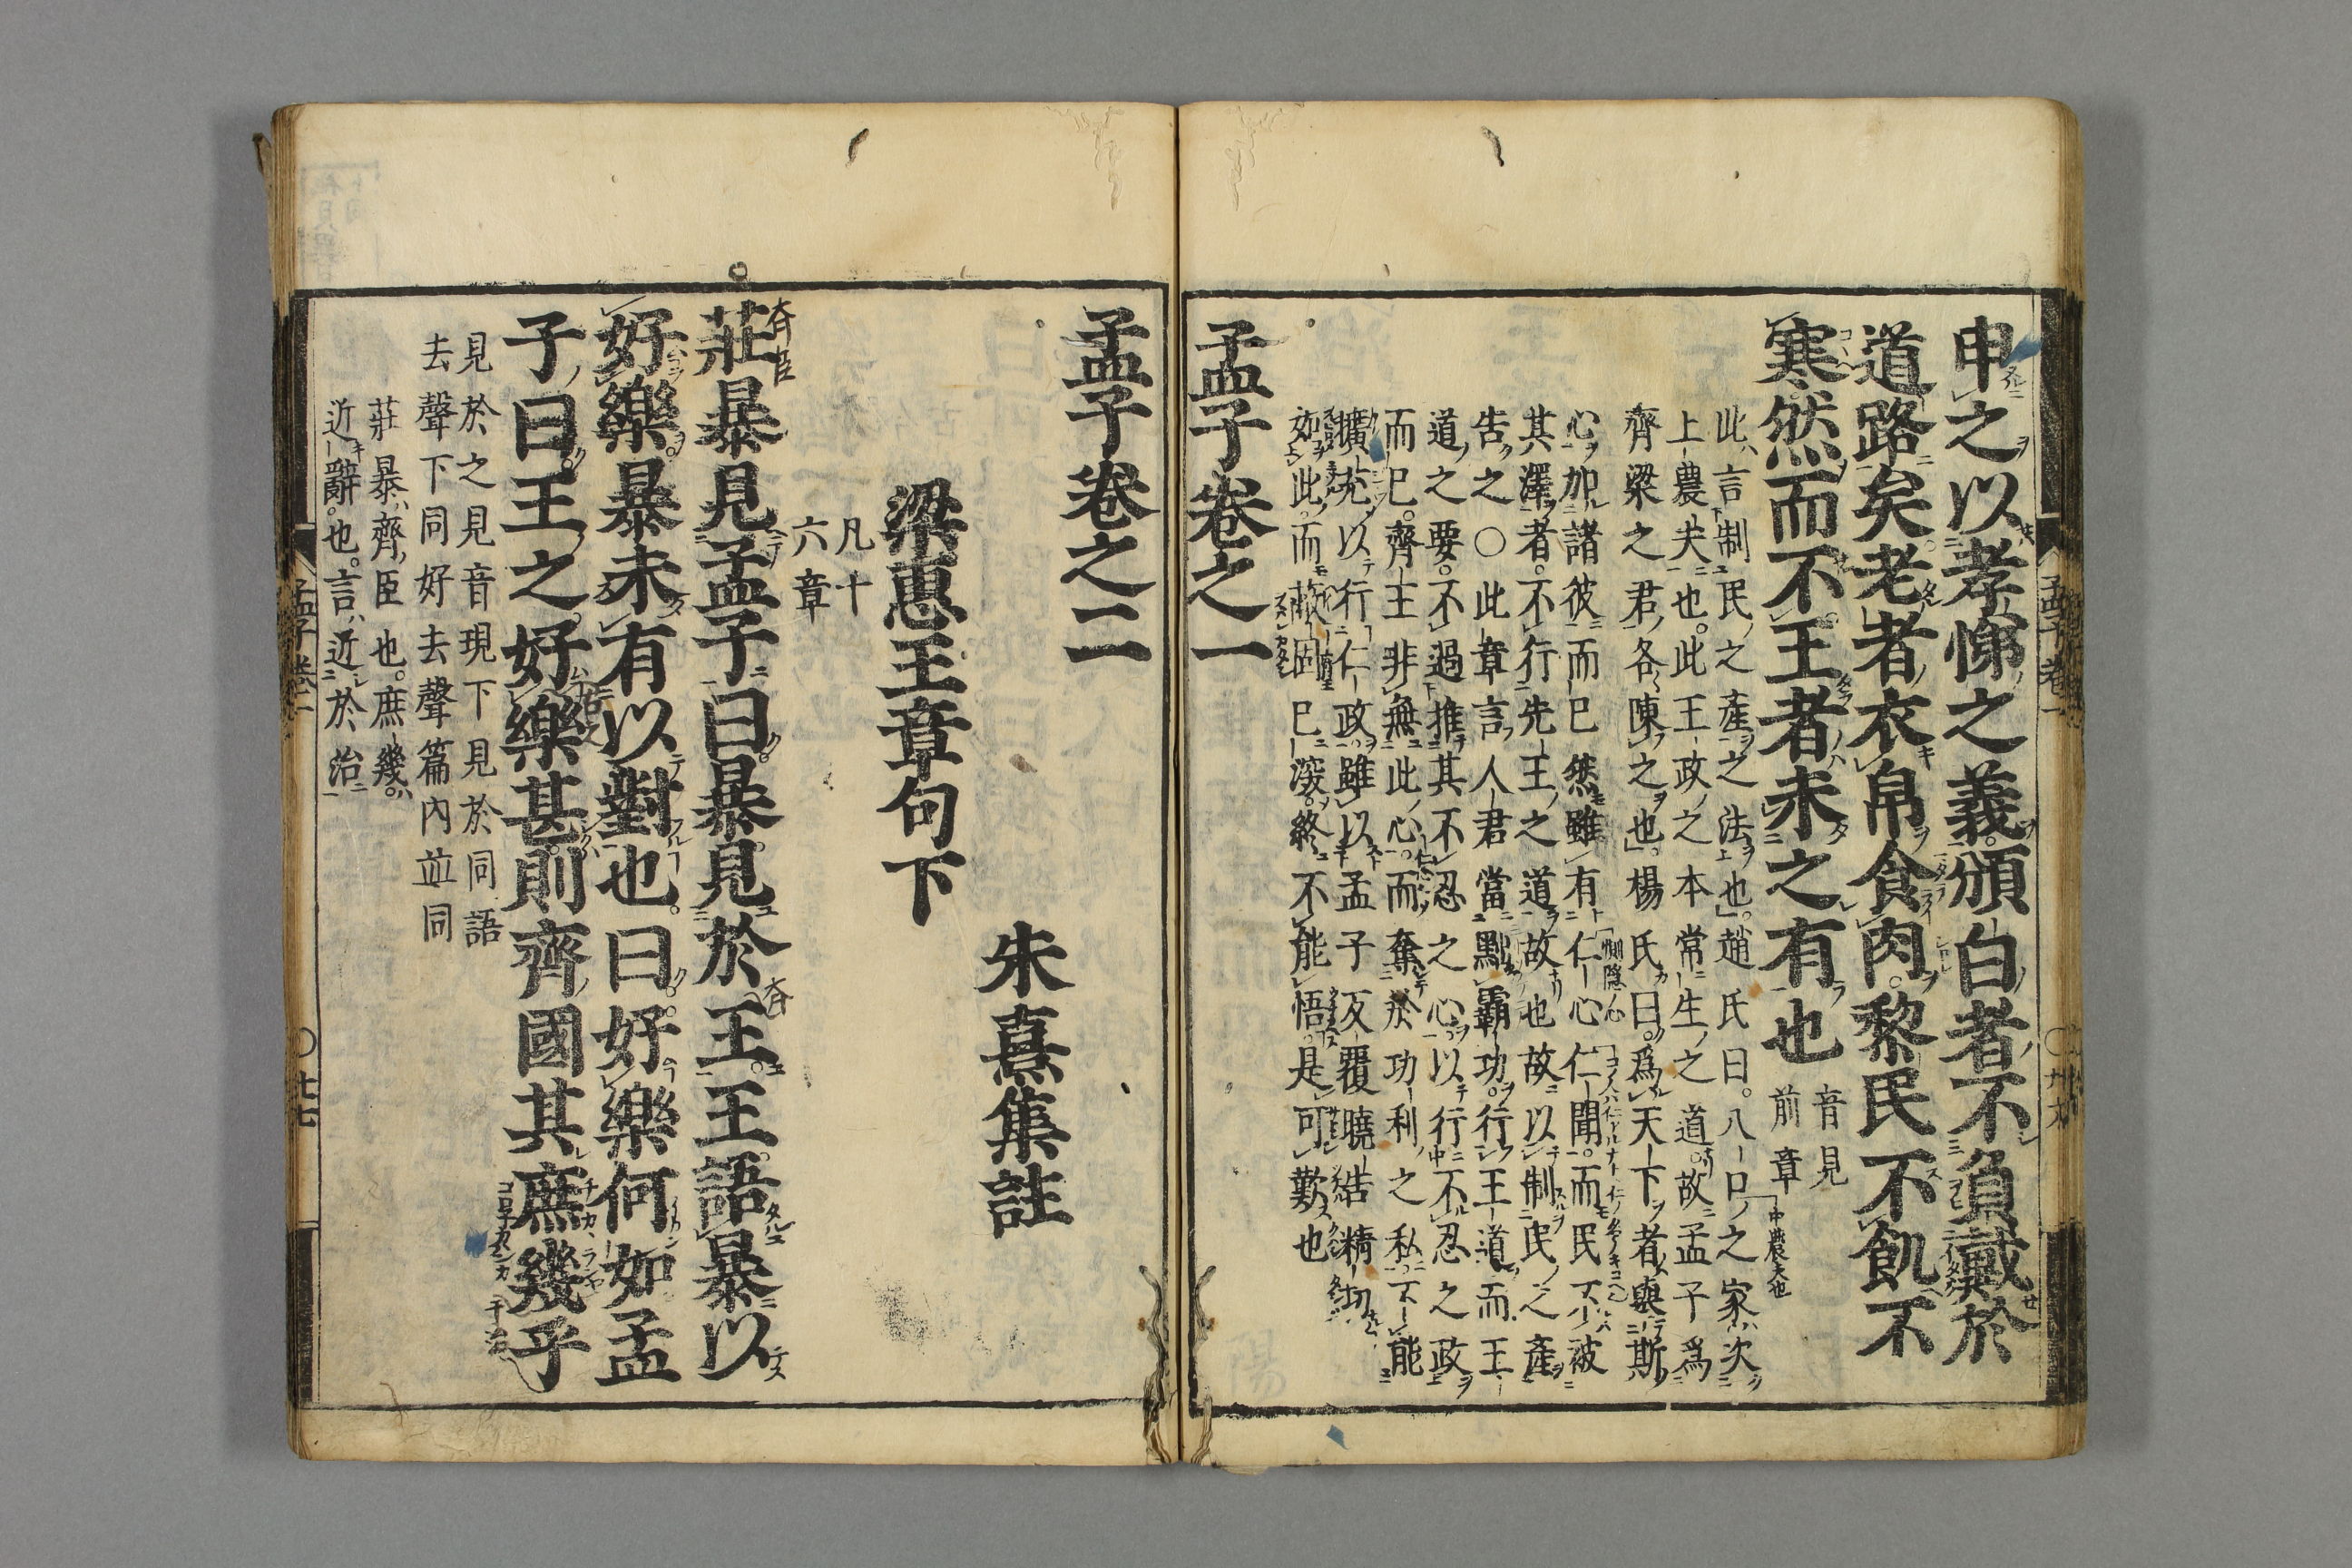 申之以孝悌之義頒白者不負戴於
道路矣老者衣帛食肉黎民不飢不
寒然而不王者未之有也
音見
前章
此言制民之產之法也趙氏曰八口之家次
中農夫也
上農夫也此王政之本常生之道故孟子爲
齊梁之君各陳之也楊氏曰爲天下者輿斯
心加諸彼而已然雖有仁心仁聞而民不被
惻隠心
其澤者不行先王之道故也故以制民之產
告之〇此章言人君當黜霸功行王道而王
道之要不過推其不忍之心以行不忍之政
而已齊王非無此心而奪於功利之私不能
擴充以行仁政雖以孟子反覆曉告精切
如此而蔽固已深終不能悟是可歎也
孟子卷之一
孟子卷一
〇廿六
孟子卷之二
朱熹集註
梁惠王章句下
凡十
六章
莊暴見孟子曰暴見於王王語暴以
斉臣
斉
好樂暴未有以對也曰好樂何如孟
子曰王之好樂甚則齊國其庶幾乎
見於之見音現下見於同語
去聲下同好去聲篇內並同
莊暴齊臣也庶幾
近辭也言近於治
孟子卷二
〇廿七